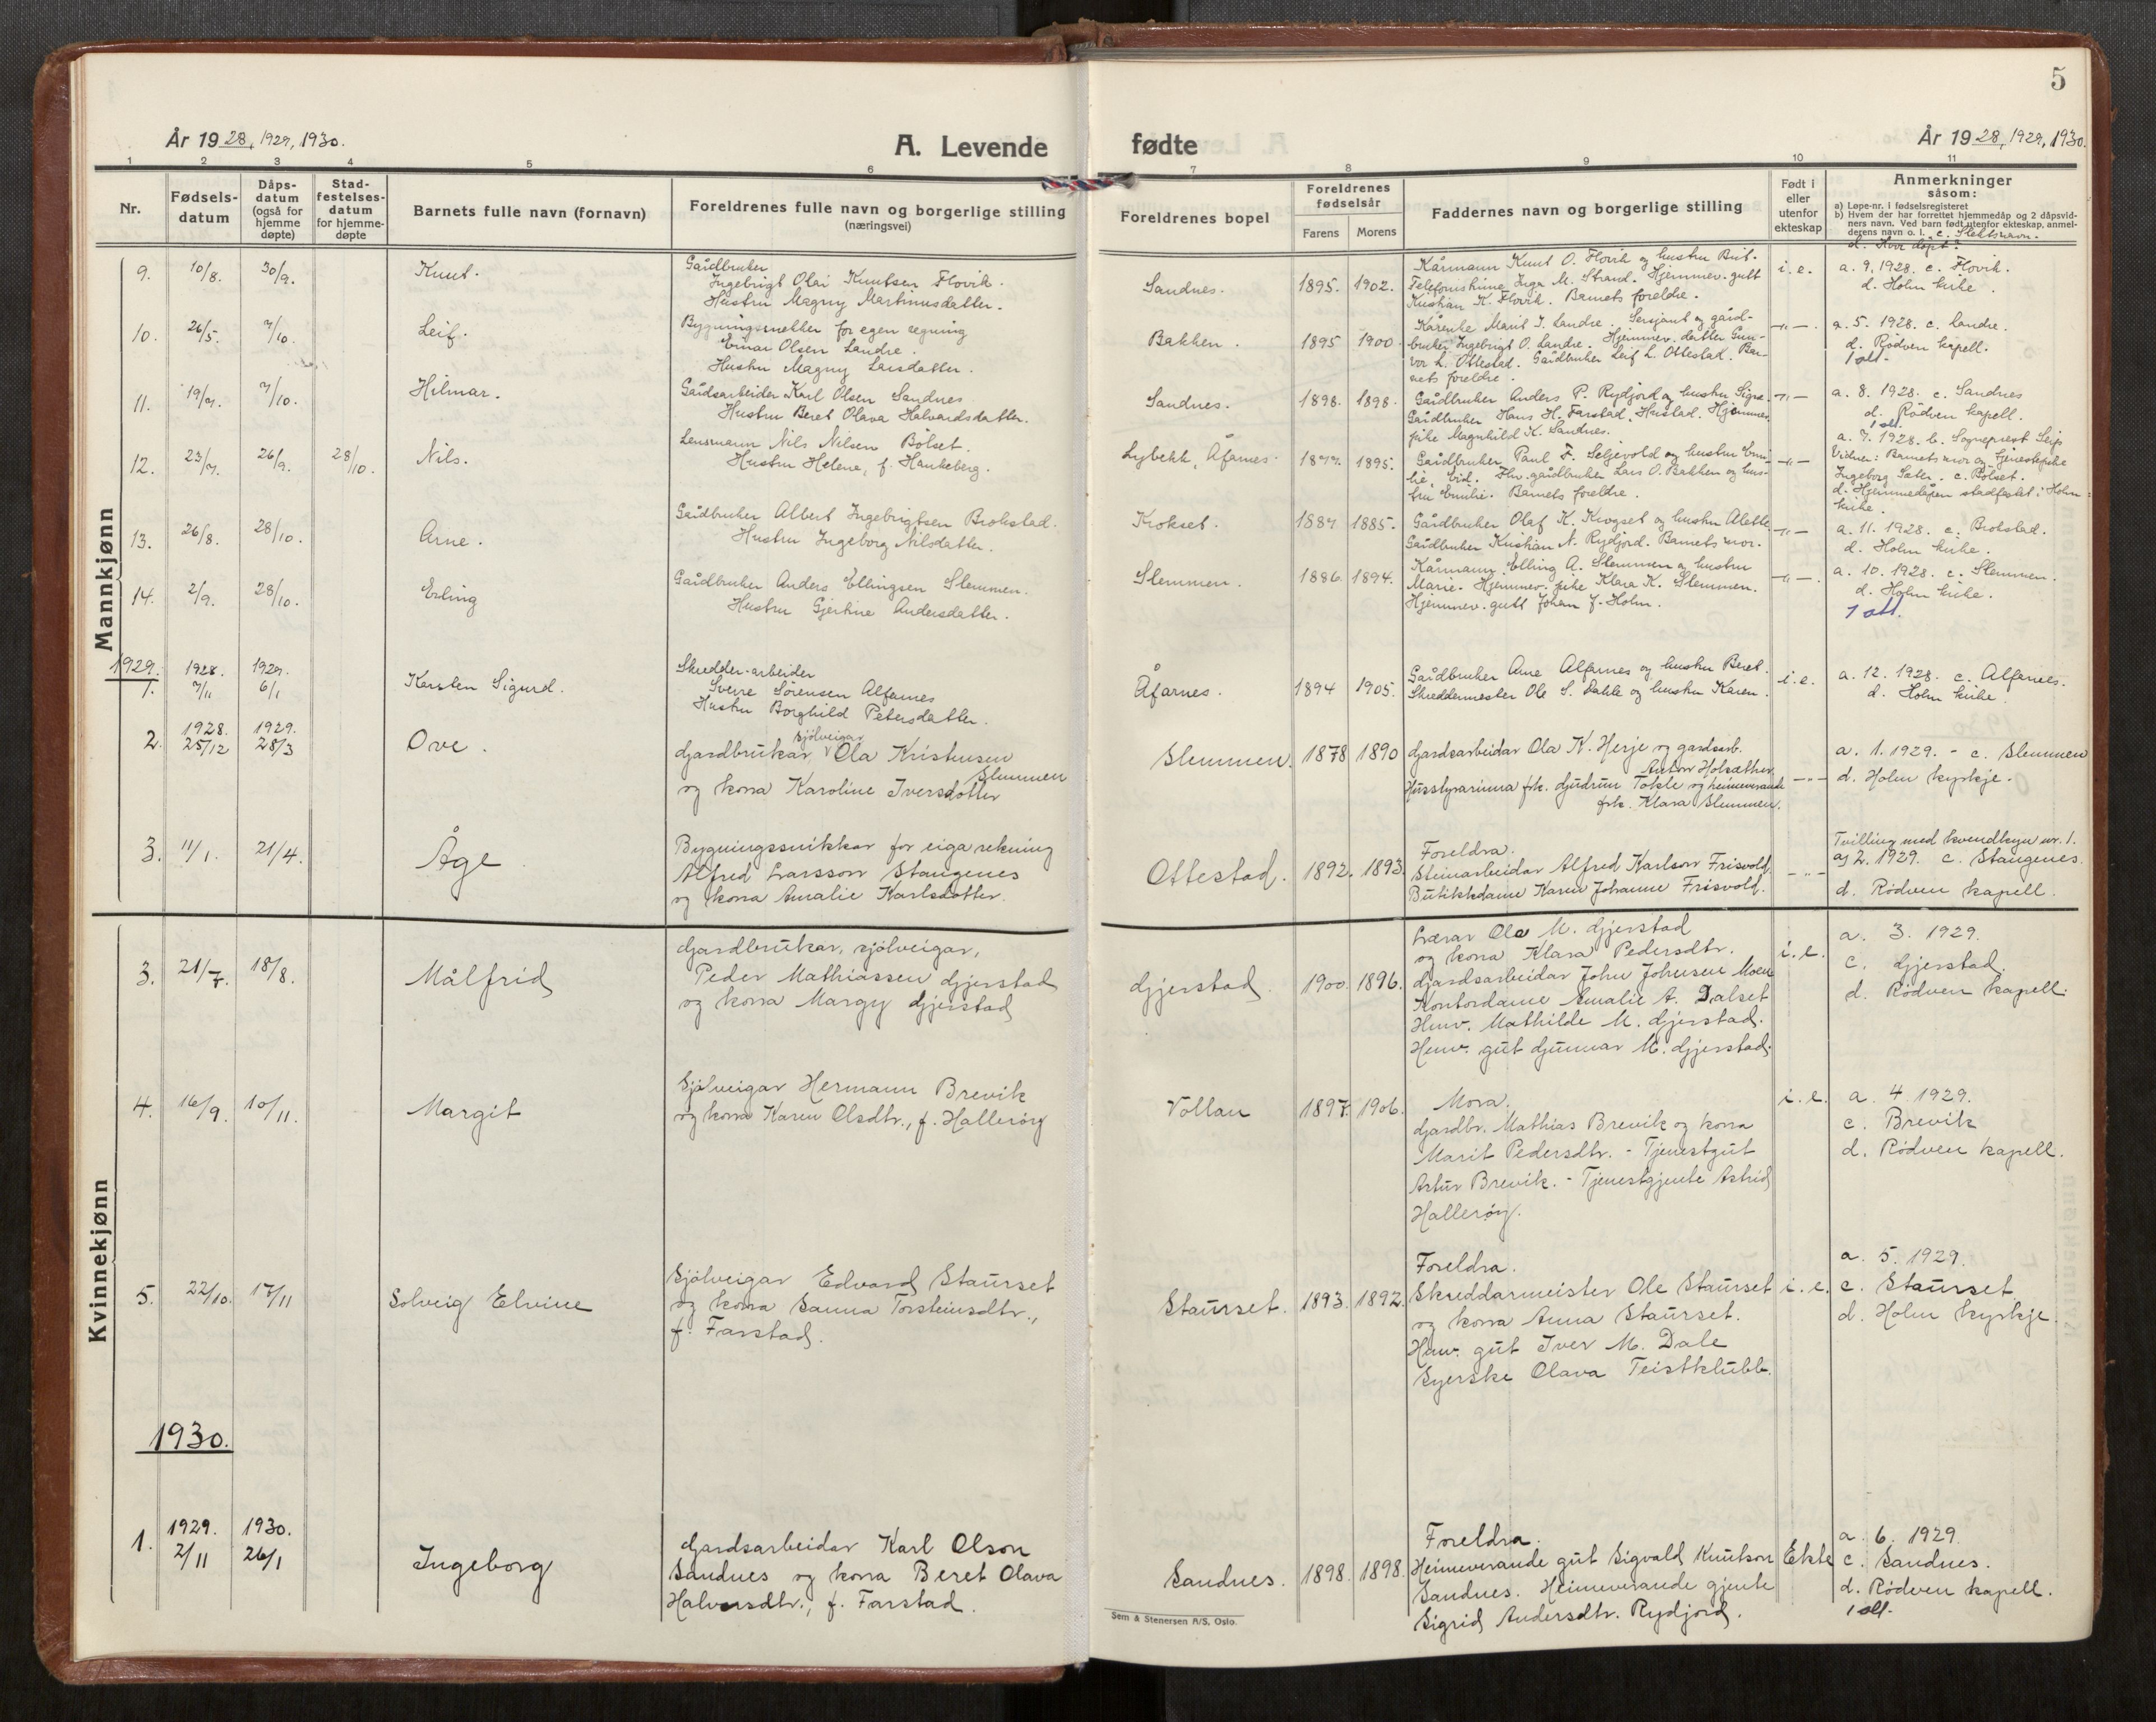 5
År 1928, 1929, 1930.
A. Levende
fødte
År 1928, 1929, 1930.
1 2 3 4 5 6 7 8 9 10 11
Nr.
Fødsels-
datum
Dåps-
datum
(også for
hjemme
døpte)
Stad-
festelses-
datum
for hjemme-
døpte
Barnets fulle navn (fornavn)
Foreldrenes fulle navn og borgerlige stilling
(næringsvei)
Foreldrenes bopel
Foreldrenes
fødselsår
Farens
Morens
Faddernes navn og borgerlige stilling
Født i
eller
utenfor
ekteskap
Anmerkninger
såsom:
a) Løpe-nr. i fødselsregisteret
b) Hvem der har forrettet hjemmedåp og 2 dåpsvid-
ners navn. Ved barn født utenfor ekteskap, anmel-
derens navn o. l. c. Slektsnavn.
d. Hvor døpt?
Mannkjønn
9. 10/8. 30/9.
Knut.
Gårdbruker
Ingebrigt Olai Knutsen Flovik.
Hustru Magny Martinusdatter.
Sandnes.
1895. 1902.
Kårmann Knut O. Flovik og hustru Brit.
Telefonstyrer Inga M. Strand. Hjemmev. gutt
Kristian K. Flovik. Barnets foreldre.
i. e.
a. 9. 1928. c. Flovik.
d. Holm kirke.
10. 26/5. 7/10.
Leif.
Bygningssnekker for egen regning
Einar Olsen Landre.
Hustru Magny Larsdatter.
Bakken.
1895 1900
Kårenke Marit I. Landre. Sersjant og gård-
bruker Ingebrigt O. Landre. Hjemmev. datter Gun-
vor L. Ottestad. Gårdbruker Leif L. Ottestad. Bar-
nets foreldre.
-"-.
a. 5. 1928. c. Landre.
d. Rødven kapell.
1 att.
11. 19/7. 7/10.
Hilmar.
Gårdsarbeider Karl Olsen Sandnes
Hustru Beret Olava Halvardsdatter.
Sandnes.
1898. 1898.
Gårdbruker Anders P. Rydjord og hustru Signe.
Gårdbruker Hans H. Farstad, Hustad. Hjemmev.
pike Magnhild K. Sandnes.
-"-
a. 8. 1928. c. Sandnes
d. Rødven kapell.
1 att.
12. 23/7. 26/9. 28/10.
Nils.
Lensmann Nils Nilsen Bølset.
Hustru Helene, f. Haukeberg.
Lybekk, Åfarnes.
1877. 1895.
Gårdbruker Paul F. Seljevold og hustru Emi-
lie, Eid. Fhv. gårdbruker Lars O. Bakken og hus-
tru Emilie. Barnets foreldre.
-"-
a. 7. 1928. b. Sogneprest Seip
Vidner: Barnets mor og tjenestepike
Ingeborg Sæter. c. Bølset.
d. Hjemmedåpen stadfestet i Holm
kirke.
13. 26/8. 28/10.
Arne.
Gårdbruker Albert Ingebrigtsen Brokstad.
Hustru Ingeborg Nilsdatter.
Krokset.
1887 1885.
Gårdbruker Olaf K. Krogset og hustru Alette.
Gårdbruker Kristian N. Rydjord. Barnets mor.
-"-
a. 11. 1928. c. Brokstad.
d. Holm kirke.
14. 2/9. 28/10.
Erling
Gårdbruker Anders Ellingsen Slemmen.
Hustru Gjertine Andersdatter.
Slemmen.
1886. 1894.
Kårmann Elling A. Slemmen og hustru
Marie. Hjemmev. pike Klara K. Slemmen.
Hjemmev. gutt Johan J. Holm.
-"-.
a. 10. 1928. c. Slemmen.
d. Holm kirke.
1 att.
1929.
1. 1928. 7/11 1929. 6/1
Karsten Sigurd.
Skredder-arbeider
Sverre Sørensen Alfarnes
Hustru Borghild Petersdatter.
Åfarnes.
1894 1905.
Gårdbruker Arne Alfarnes og hustru Beret.
Skreddermester Ole S. Dahle og hustru Karen.
i. e.
a. 12. 1928. c. Alfarnes.
d. Holm kirke.
2. 1928. 25/12 1929. 28/3
Ove.
Gardbrukar, sjølveigar Ola Kristensen
Slemmen
og kona Karoline Iversdotter
Slemmen.
1878 1890
Gardsarbeidar Ola K. Herje og gardsarb.
Anton Holsæther
Husstyrarinna frk. Gudrun Tokle og heimeverande
frk. Klara Slemmen.
-"-
a. 1. 1929. - c. Slemmen
d. Holm kyrkje.
3. 11/1. 21/4.
Åge
Bygningssnikkar for eiga rekning
Alfred Larsson Stangenes
og kona Amalie Karlsdotter.
Ottestad.
1892. 1893.
Foreldra.
Steinarbeidar Alfred Karlson Frisvold.
Butikkdame Karen Johanne Frisvold.
-"-
Tvilling med kvendkyn nr. 1.
a. 2. 1929. c. Stangenes.
d. Rødven kapell.
Kvinnekjønn
3. 21/7. 18/8.
Målfrid
Gardbrukar, sjølveigar,
Peder Mathiassen Gjerstad
og kona Margy Gjerstad
Gjerstad.
1900. 1896.
Lærar Ola M. Gjerstad
og kona Klara Pedersdtr.
Gardsarbeidar John Johnsen Moen
Kontordame Amalie A. Dalset
Heimv. Mathilde M. Gjerstad.
Heimv. gut Gunnar M. Gjerstad.
i. e.
a. 3. 1929.
c. Gjerstad.
d. Rødven kapell.
4. 16/9. 10/11.
Margit
Sjølveigar Hermann Brevik
og kona Karen Olsdtr., f. Hallerøy
Vollan
1897. 1906.
Mora.
Gardbr. Mathias Brevik og kona
Marit Pedersdtr. - Tjenestgut
Artur Brevik. - Tjenestgjente Astrid
Hallerøy.
i. e.
a. 4 1929.
c. Brevik
d. Rødven kapell.
5. 22/10. 17/11
Solveig Elvine
Sjølveigar Edvard Staurset
og kona Sanna Torsteinsdtr.,
f. Farstad.
Staurset.
1893. 1892.
Foreldra.
Skreddarmeister Ole Staurset
og kona Anna Staurset.
Heimv. gut Iver M. Dale
Syerske Olava Teistklubb.
i. e.
a. 5. 1929.
c. Staurset
d. Holm kyrkje.
1930.
1. 1929. 2/11 1930. 26/1
Ingeborg
Gardsarbeidar Karl Olson
Sandnes og kona Beret Olava
Halvorsdtr., f. Farstad.
Sandnes.
1898. 1898.
Foreldra.
Heimeverande gut Sigvald Knutson
Sandnes. Heimeverande gjente
Sigrid Andersdtr. Rydjord.
Ekte
a. 6. 1929.
c. Sandnes.
d. Rødven kapell.
1 att.
Sem & Stenersen A/S, Oslo.